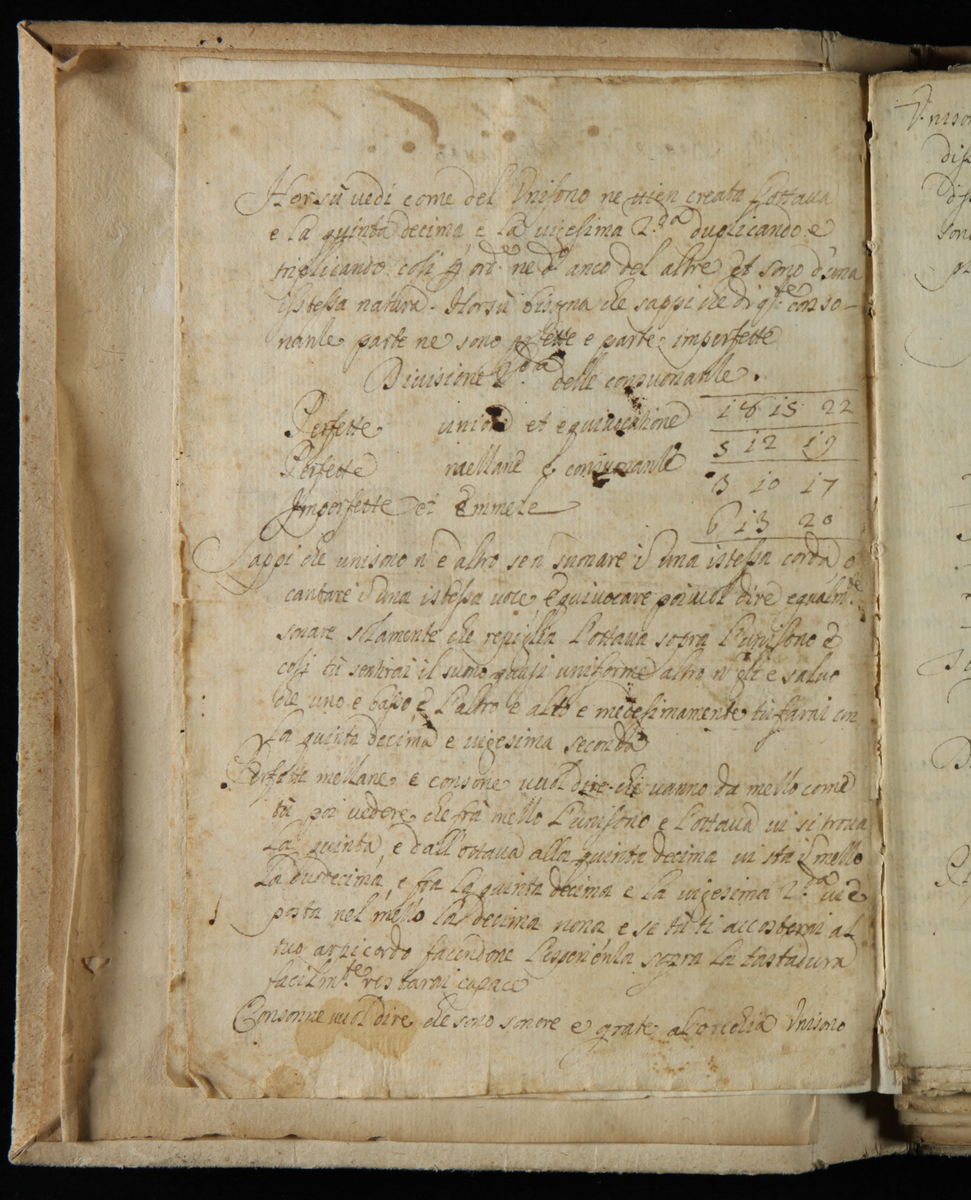 Horsù vedi come del Unisono ne vien creata l'ottava
e la quinta decima, e la vigesima 2.da duplicando, e
triplicando così ord.e ne d'anco del altre et sono d'una
istessa natura. Horsù bisogna che sappi che di q.ste conso-
nanze parte ne sono p[er]fette e parte imperfette
Divisione 2.da delle consuonanze.
Perfette unione et equivocatione 1 8 15 22
Perfette mezzane e consuonante 5 12 19
Imperfette et Emmele 3 10 17
6 13 20
Sappi che unisono n' è altro se n' suonare i' una istessa corda, o
cantare i' una istessa voce, equivocare poi vuol dire equalm.te
sonare solamente che repiglia l'ottava sopra l'unisono è
così tù sentirai il suono quasi uniforme altro n' v'è salvo
che uno e basso, è l'altro è alto e medesimamente tù farai con
la quinta decima e vigesima seconda
Perfette mezzane e consone vuol dire che vanno da mezzo come
tù poi vedere che frà mezzo l'unisono e l'ottava vi si trova
la quinta, e dall'ottava alla quinta decima vi sta i' mezzo
la duodecima, e fra la quinta decima e la vigesima 2.da vi è
posta nel mezzo la decima nona e se tù ti accosterai al
tuo arpicordo facendone l'esperienza sopra la tastadura
facilm.te restarai capace
Consonne vuol dire che sono sonore e grate al'orechia Unisono